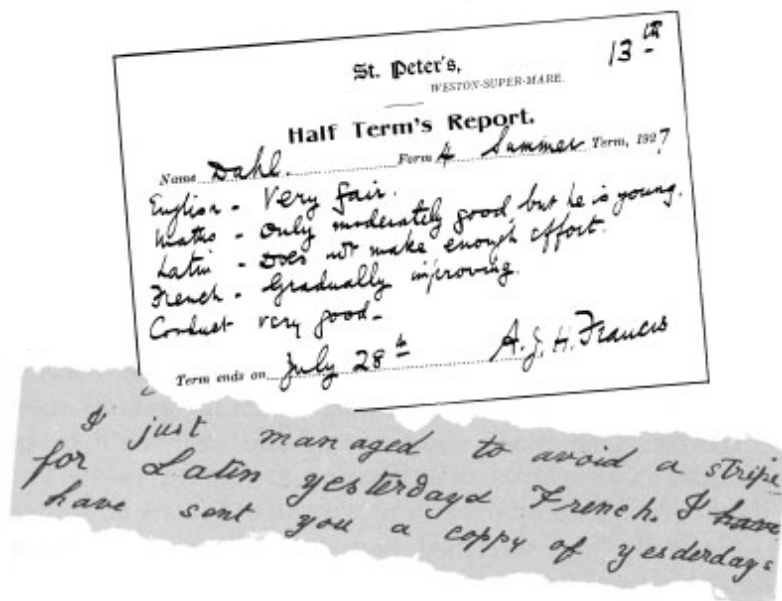 13th
St. Peter's,
WESTON-SUPER-MARE.
Half Term's Report.
Name Dahl. Form 4 Summer Term, 1927
English - Very fair.
Maths - Only moderately good, but he is young.
Latin - Does not make enough effort.
French - Gradually improving.
Conduct very good -
Term ends on July 28th A.J.H. Francis
I just managed to avoid a stripe
for Latin yesterdayd French. I have
have sent you a coppy of yesderdays